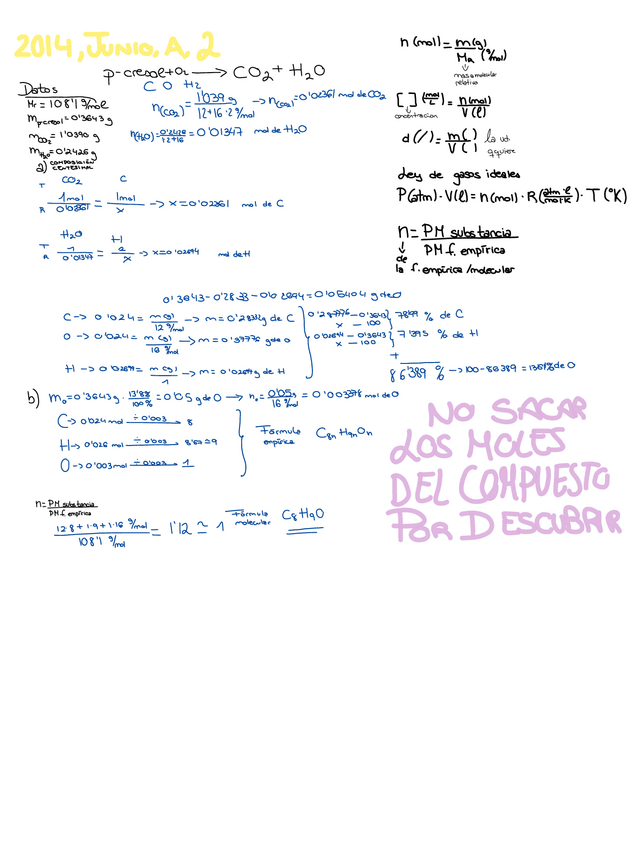 2014, JUNIO, A, 2
p-cresol + O₂ → CO₂ + H₂O
Datos
Mr = 108'1 g/mol
m p-cresol = 0'3643 g
mCO₂ = 1'0390 g
mH₂O = 0'2426 g
C O H₂
n(CO₂) = 1'039 g / 12+16·2 g/mol → n(CO₂) = 0'02361 mol de CO₂
n(H₂O) = 0'2426 / 1·2+16 = 0'01347 mol de H₂O
a) COMPOSICIÓN CENTESIMAL
CO₂ C
T 1mol / R 0'02361 = 1mol / x → x = 0'02361 mol de C
H₂O H
T 1 / R 0'01347 = 2 / x → x = 0'02694 mol de H
0'3643 - 0'2833 - 0'02694 = 0'05404 g de O
C → 0'024 = m(g) / 12 g/mol → m = 0'2832 g de C
O → 0'024 = m(g) / 16 g/mol → m = 0'37776 g de O
H → 0'02694 = m(g) / 1 → m = 0'02694 g de H
x — 100
78'49 % de C
0'02694 — 0'3643
x — 100
7'395 % de H
+
86'389 % → 100 - 86'389 = 13'61 % de O
b) mₒ = 0'3643 g · 13'88 % / 100 % = 0'05 g de O → nₒ = 0'05 g / 16 g/mol = 0'003378 mol de O
C → 0'024 mol ÷ 0'003 8
H → 0'026 mol ÷ 0'003 8'63 ≃ 9
O → 0'003 mol ÷ 0'003 1
Fórmula empírica C₈ₙ H₉ₙ Oₙ
n = PM substancia / PM f. empírica
12·8 + 1·9 + 1·16 g/mol / 108'1 g/mol = 1'12 ≃ 1
Fórmula molecular C₈H₉O
n (mol) = m(g) / Mr (g/mol)
masa molecular relativa
[ ] (mol/L) = n(mol) / V(l)
concentracion
d ( / ) = m( ) / V( ) la ud. q quiere
Ley de gases ideales
P(atm) · V(l) = n(mol) · R(atm·l / mol·K) · T(°K)
n = PM substancia / PM f. empírica
de la f. empírica/molecular
NO SACAR
LOS MOLES
DEL COMPUESTO
POR DESCUBRIR